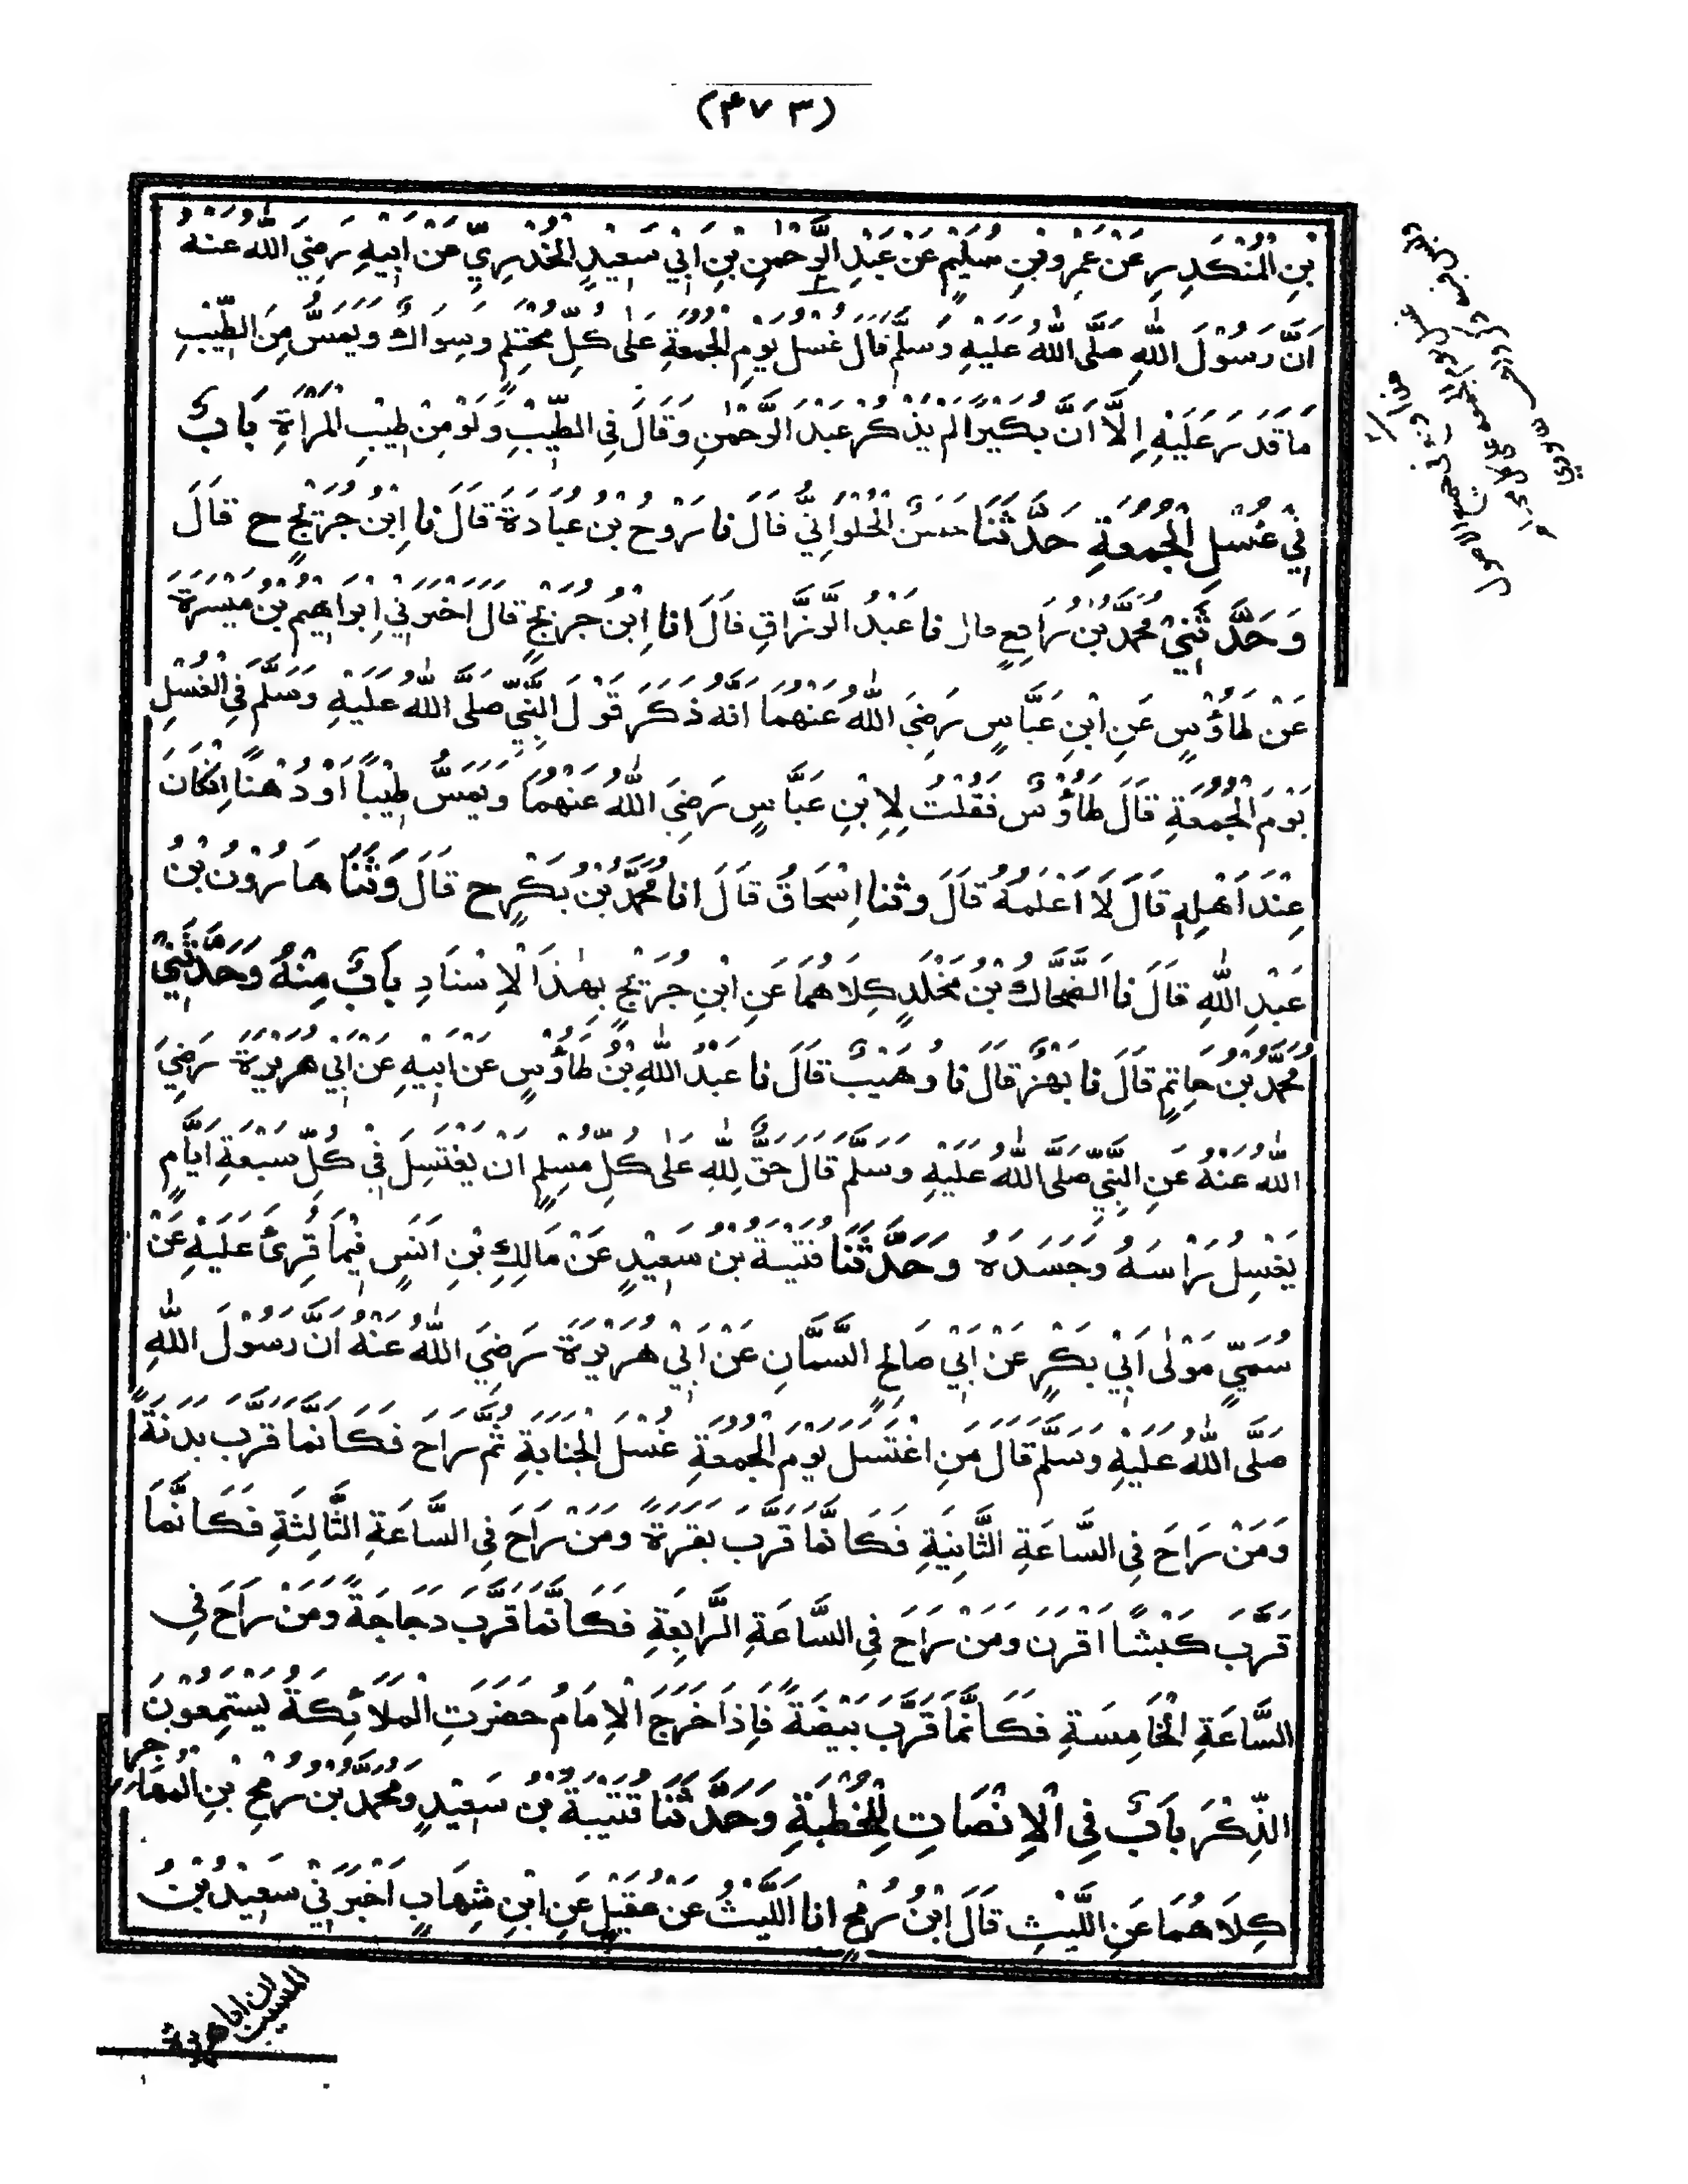 (۴۷۳)
بْنِ الْمُنْكَدِرِ عَنْ عَمْرِو بْنِ سُلَيْمٍ عَنْ عَبْدِ الرَّحْمٰنِ بْنِ اَبِيْ سَعِيْدٍ الْخُدْرِيِّ عَنْ اَبِيْهِ رَضِيَ اللّٰهُ عَنْهُ
اَنَّ رَسُوْلَ اللّٰهِ صَلَّى اللّٰهُ عَلَيْهِ وَسَلَّمَ قَالَ غُسْلُ يَوْمِ الْجُمُعَةِ عَلٰى كُلِّ مُحْتَلِمٍ وَسِوَاكٌ وَيَمَسُّ مِنَ الطِّيْبِ
مَا قَدَرَ عَلَيْهِ اِلَّا اَنَّ بُكَيْرًا لَمْ يَذْكُرْ عَبْدَ الرَّحْمٰنِ وَقَالَ فِى الطِّيْبِ وَلَوْ مِنْ طِيْبِ الْمَرْاَةِ بَابٌ
فِيْ غُسْلِ الْجُمُعَةِ حَدَّثَنَا حَسَنٌ الْحُلْوَانِيُّ قَالَ نَا رَوْحُ بْنُ عُبَادَةَ قَالَ نَا اِبْنُ جُرَيْجٍ ح قَالَ
وَحَدَّثَنِيْ مُحَمَّدُ بْنُ رَافِعٍ قال نا عَبْدُ الرَّزَّاقِ قَالَ انا اِبْنُ جُرَيْجٍ قَالَ اَخْبَرَنِيْ اِبْرَاهِيْمُ بْنُ مَيْسَرَةَ
عَنْ طَاؤُسٍ عَنِ ابْنِ عَبَّاسٍ رَضِيَ اللّٰهُ عَنْهُمَا اَنَّهُ ذَكَرَ قَوْلَ النَّبِيِّ صَلَّى اللّٰهُ عَلَيْهِ وَسَلَّمَ فِى الْغُسْلِ
يَوْمَ الْجُمُعَةِ قَالَ طَاؤُسٌ فَقُلْتُ لِاِبْنِ عَبَّاسٍ رَضِيَ اللّٰهُ عَنْهُمَا وَيَمَسُّ طِيْبًا اَوْ دُهْنًا اِنْ كَانَ
عِنْدَ اَهْلِهٖ قَالَ لَا اَعْلَمُهُ قَالَ وثنا اِسْحَاقُ قَالَ انا مُحَمَّدُ بْنُ بَكْرٍ ح قَالَ وَثَنَا هَارُوْنُ بْنُ
عَبْدِ اللّٰهِ قَالَ نَا الضَّحَّاكُ بْنُ مَخْلَدٍ كِلَاهُمَا عَنِ ابْنِ جُرَيْجٍ بِهٰذَا الْاِسْنَادِ بَابٌ مِنْهُ وَحَدَّثَنِيْ
مُحَمَّدُ بْنُ حَاتِمٍ قَالَ نَا بَهْزٌ قَالَ نَا وُهَيْبٌ قَالَ نَا عَبْدُ اللّٰهِ بْنُ طَاؤُسٍ عَنْ اَبِيْهِ عَنْ اَبِيْ هُرَيْرَةَ رَضِيَ
اللّٰهُ عَنْهُ عَنِ النَّبِيِّ صَلَّى اللّٰهُ عَلَيْهِ وَسَلَّمَ قَالَ حَقٌّ لِلّٰهِ عَلٰى كُلِّ مُسْلِمٍ اَنْ يَغْتَسِلَ فِيْ كُلِّ سَبْعَةِ اَيَّامٍ
يَغْسِلُ رَاْسَهُ وَجَسَدَهُ وَحَدَّثَنَا قُتَيْبَةُ بْنُ سَعِيْدٍ عَنْ مَالِكِ بْنِ اَنَسٍ فِيْمَا قُرِئَ عَلَيْهِ عَنْ
سُمَيٍّ مَوْلٰى اَبِيْ بَكْرٍ عَنْ اَبِيْ صَالِحٍ السَّمَّانِ عَنْ اَبِيْ هُرَيْرَةَ رَضِيَ اللّٰهُ عَنْهُ اَنَّ رَسُوْلَ اللّٰهِ
صَلَّى اللّٰهُ عَلَيْهِ وَسَلَّمَ قَالَ مَنِ اغْتَسَلَ يَوْمَ الْجُمُعَةِ غُسْلَ الْجَنَابَةِ ثُمَّ رَاحَ فَكَاَنَّمَا قَرَّبَ بَدَنَةً
وَمَنْ رَاحَ فِى السَّاعَةِ الثَّانِيَةِ فَكَاَنَّمَا قَرَّبَ بَقَرَةً وَمَنْ رَاحَ فِى السَّاعَةِ الثَّالِثَةِ فَكَاَنَّمَا
قَرَّبَ كَبْشًا اَقْرَنَ وَمَنْ رَاحَ فِى السَّاعَةِ الرَّابِعَةِ فَكَاَنَّمَا قَرَّبَ دَجَاجَةً وَمَنْ رَاحَ فِى
السَّاعَةِ الْخَامِسَةِ فَكَاَنَّمَا قَرَّبَ بَيْضَةً فَاِذَا خَرَجَ الْاِمَامُ حَضَرَتِ الْمَلَائِكَةُ يَسْتَمِعُوْنَ
الذِّكْرَ بَابٌ فِى الْاِنْصَاتِ لِلْخُطْبَةِ وَحَدَّثَنَا قُتَيْبَةُ بْنُ سَعِيْدٍ وَمُحَمَّدُ بْنُ رُمْحِ بْنِ الْمُهَاجِرِ
كِلَاهُمَا عَنِ اللَّيْثِ قَالَ ابْنُ رُمْحٍ انا اللَّيْثُ عَنْ عُقَيْلٍ عَنِ ابْنِ شِهَابٍ اَخْبَرَنِيْ سَعِيْدُ بْنُ
المسيب
ان ابا هريرة